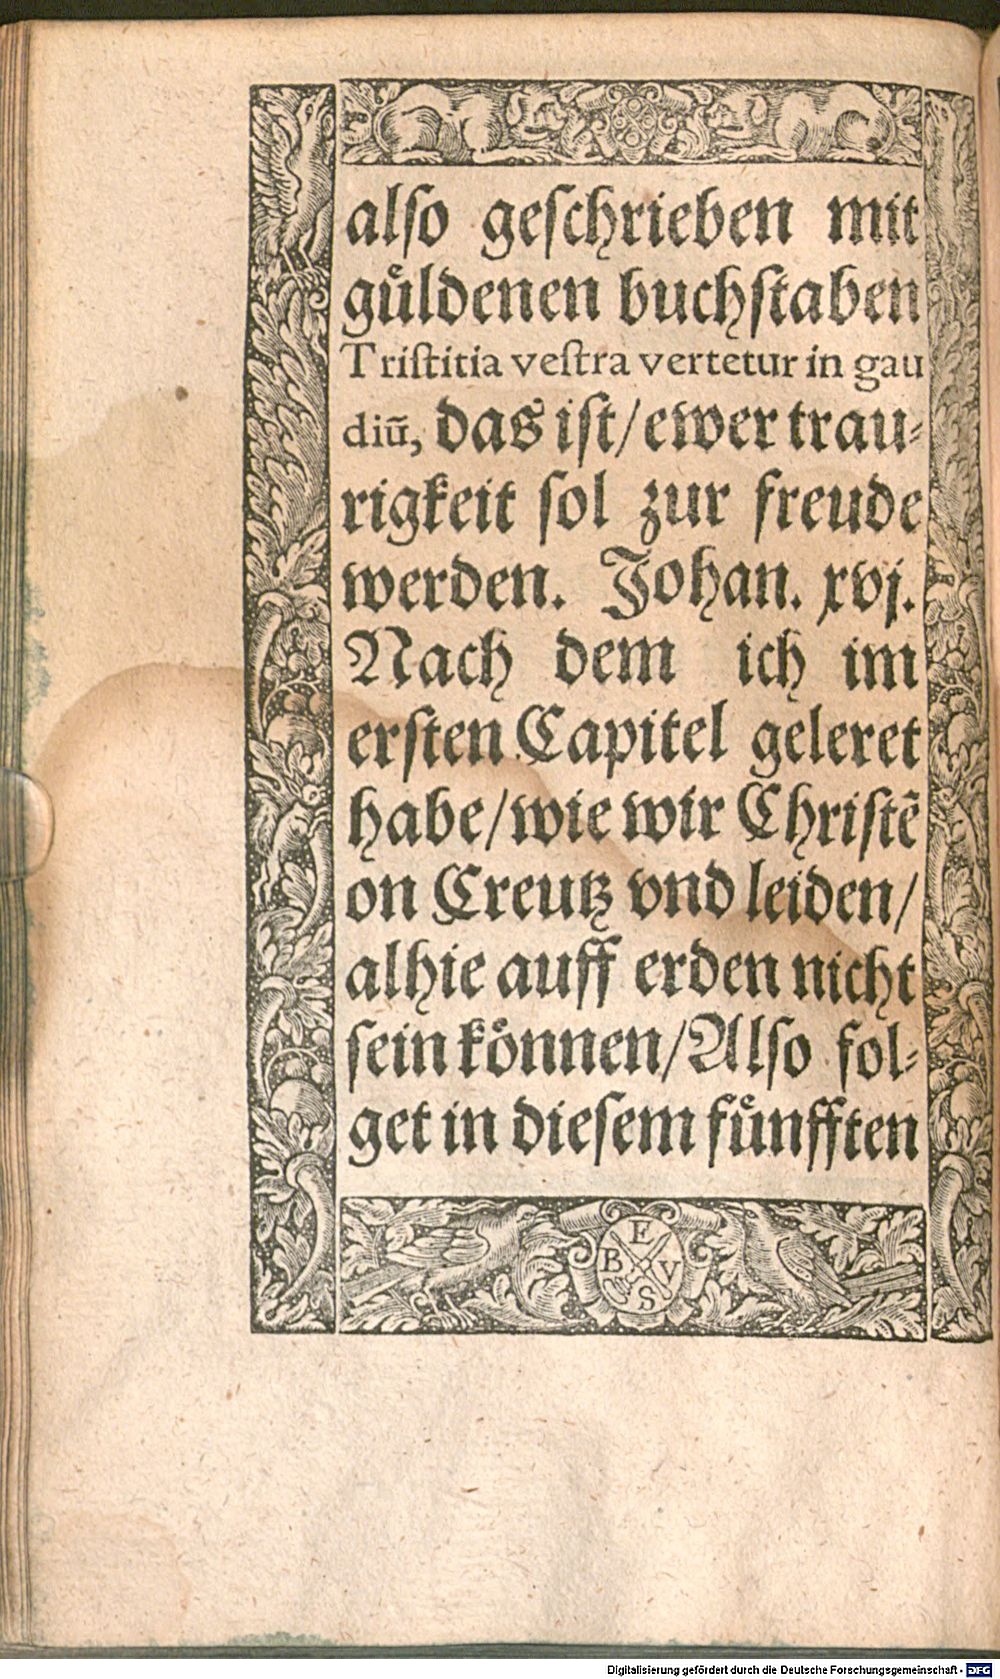 also geschrieben mit
guͤldenen buchstaben
Tristitia vestra vertetur in gau
diū, das ist/ ewer trau⸗
rigkeit sol zur freude
werden. Johan. xvj.
Nach dem ich im
ersten Capitel geleret
habe/ wie wir Christē
on Creutz vnd leiden/
alhie auff erden nicht
sein koͤnnen/ Also fol⸗
get in diesem fuͤnfften
E
B V
S
Digitalisierung gefördert durch die Deutsche Forschungsgemeinschaft - DFG